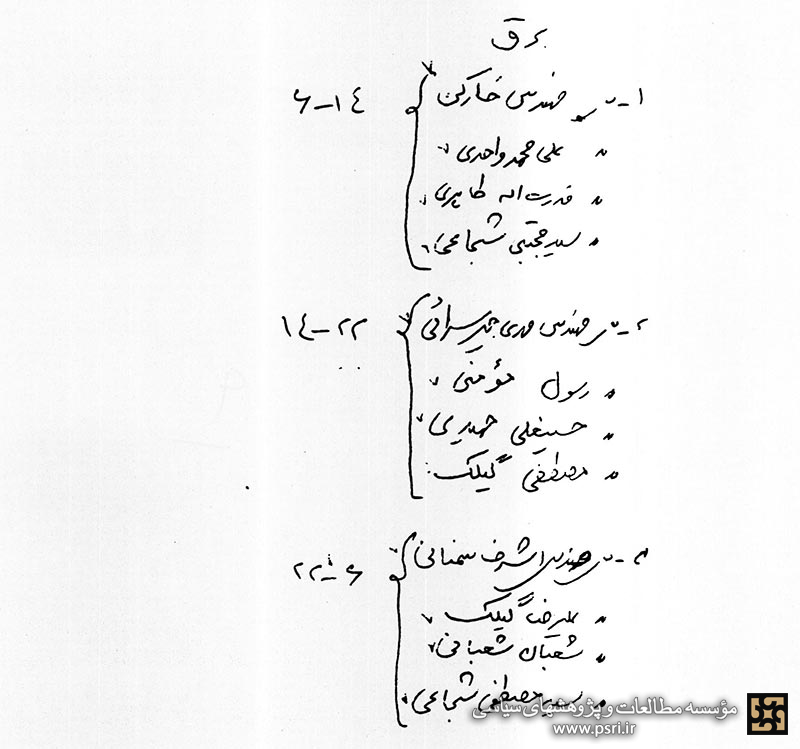 برق
۱- مهندس خارکن ۶-۱۴
" علی محمد واحدی
" قدرت اله طاهری
" سید مجتبی شجاعی
۲- مهندس مهدی سرائی ۱۴-۲۲
" رسول مؤمنی
" حسینعلی حیدری
" مصطفی گیلک
۳- مهندس اشرف سمنانی ۲۲-۶
" علیرضا گیلک
" شعبان شعبانی
" سید مصطفی شجاعی
مؤسسه مطالعات و پژوهشهای سیاسی
www.psri.ir